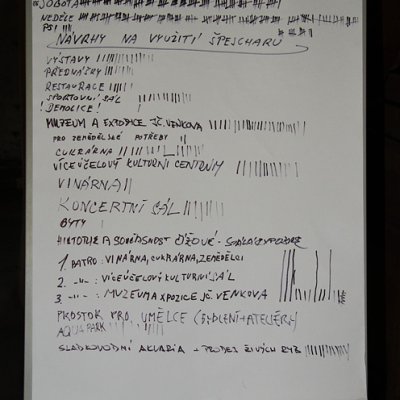 SOBOTA
NEDĚLE
PSI
NÁVRHY NA VYUŽITÍ ŠPEJCHARU
VÝSTAVY
PŘEDNÁŠKY
RESTAURACE
SPORTOVNÍ SÁL
! DEMOLICE !
MUZEUM A EXPOZICE JČ. VENKOVA
PRO ZEMĚDĚLSKÉ POTŘEBY
CUKRÁRNA
VÍCEÚČELOVÝ KULTURNÍ CENTRUM
VINÁRNA
KONCERTNÍ SÁL
BYTY
HISTORIE A SOUČASNOST
1. PATRO: VINÁRNA, CUKRÁRNA, ZEMĚDĚLCI
2. -"- : VÍCEÚČELOVÝ KULTURNÍ SÁL
3. -"- : MUZEUM A XPOZICE JČ. VENKOVA
PROSTOR PRO UMĚLCE (BYDLENÍ+ATELIÉRY)
AQUAPARK
SLADKOVODNÍ AKVARIA - PRODEJ ŽIVÝCH RYB